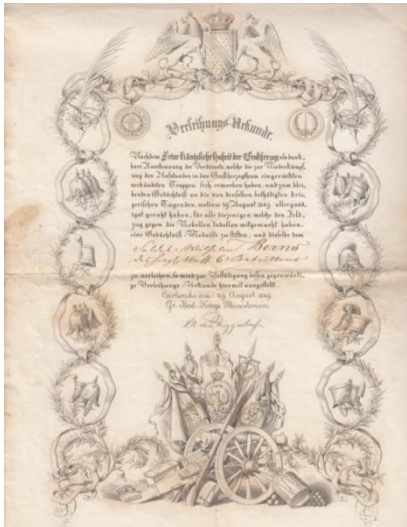 Verleihungs-Urkunde.
Nachdem Seine Königliche Hoheit der Großherzog als dank-
bare Anerkennung der Verdienste, welche die zur Niederkämpf-
ung des Aufstandes in das Großherzogthum eingerückten
verbündeten Truppen sich erworben haben, und zum blei-
benden Gedächtniß an die von denselben bethätigten krie-
gerischen Tugenden, unterm 29 August 1849 allergnäd-
igst geruht haben, für alle diejenigen welche den Feld-
zug gegen die Rebellen tadellos mitgemacht haben,
eine Gedächtniß Medaille zu stiften, und dieselbe dem
Berner
zu verleihen, so wird zur Bestätigung dessen gegenwärti-
ge Verleihungs-Urkunde hiermit ausgestellt.
Carlsruhe den 29 August 1849
Gr. Bad. Kriegs Ministerium